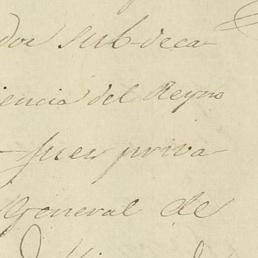 dor sub-deca
iencia del Reyno
Juez priva
General de